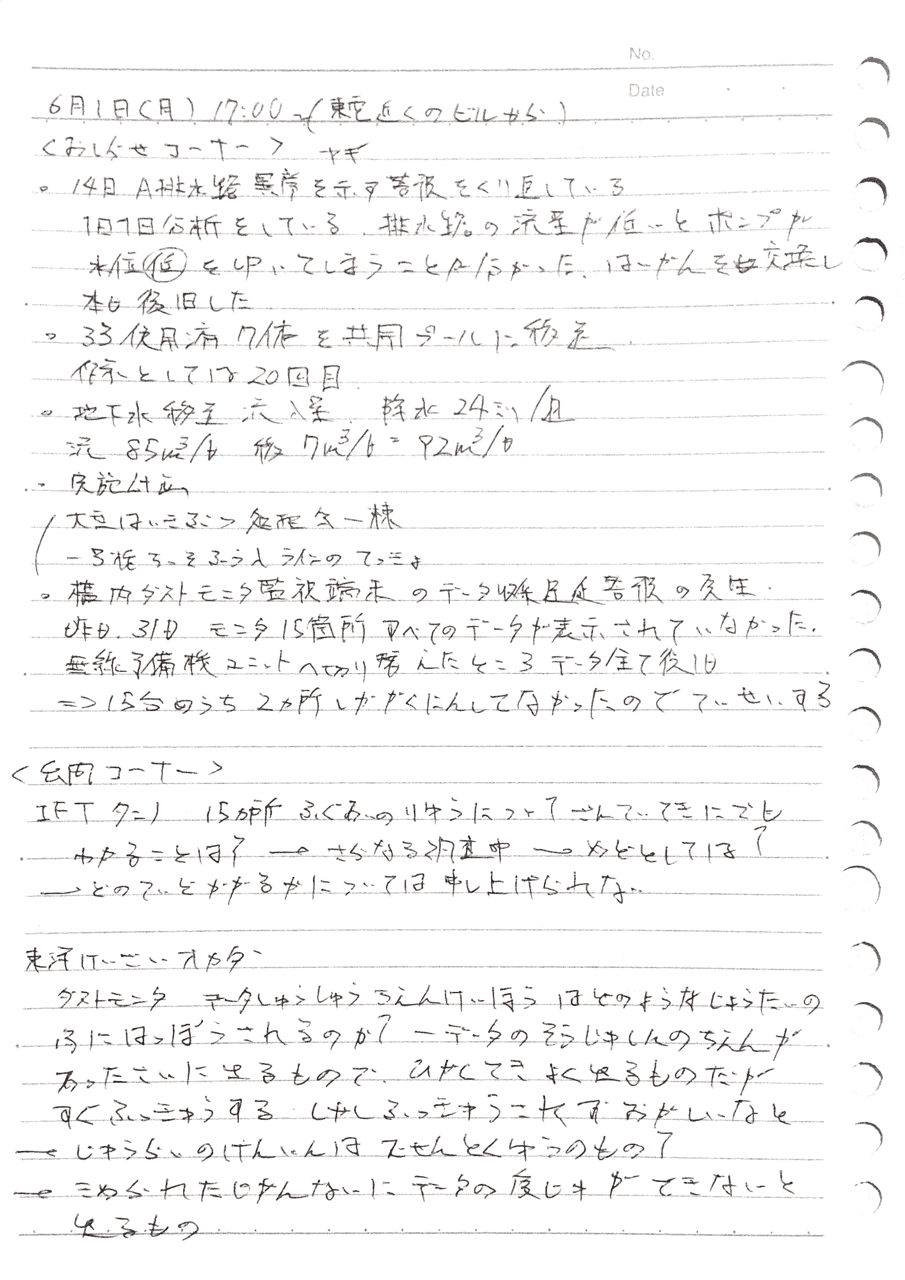 No.
Date
6月1日(月) 17:00~(東電近くのビルから)
<おしらせコーナー> ヤギ
・14日 A排水路異常を示す警報をくり返している
1日1日分析をしている、排水路の流量が低いとポンプが
水位(位)を叩いてしまうことがわかった、はいかんを交換し
本日後旧した
・33使用済7体を共用プールに移送
作業としては20回目
・地下水移送 流入量 降水24ミリ/日
流 85m³/日 後 7m³/日 = 92m³/日
・実施計画
大型はいきぶつ 一棟
一号機 ろっそふうん ラインの てっきょ
・構内ダストモニタ監視端末のデータ収集遅延警報の発生.
昨日、31日 モニタ15箇所すべてのデータが表示されていなかった.
無線予備機ユニットへ切り替えたところデータ全て後旧
=>15台のうち2カ所しかかくにんしてなかったのでていせいする
<質問コーナー>
IFT タニノ 15カ所 ふぐあいのりゆうについて? ざんていてきにでも
わかることは? → さらなる調査中 → めどとしては?
→ どのていどかかるかについては申し上げられない
東洋けいざい オカダ
ダストモニタ データしゅうしゅうちえんけいほうはどのようなじょうたいの
ふにはっぽうされるのか? ーデータのそうじゅしんのちえんが
あったさいに出るもので、ひかくてきよく出るものだが
すぐふっきゅうする しかしふっきゅうこれずおかしいなと
→ じゅうらいのげんいんはでんせんとくゆうのもの?
→ きめられたじかんないにデータの受じゅができないと
出るもの